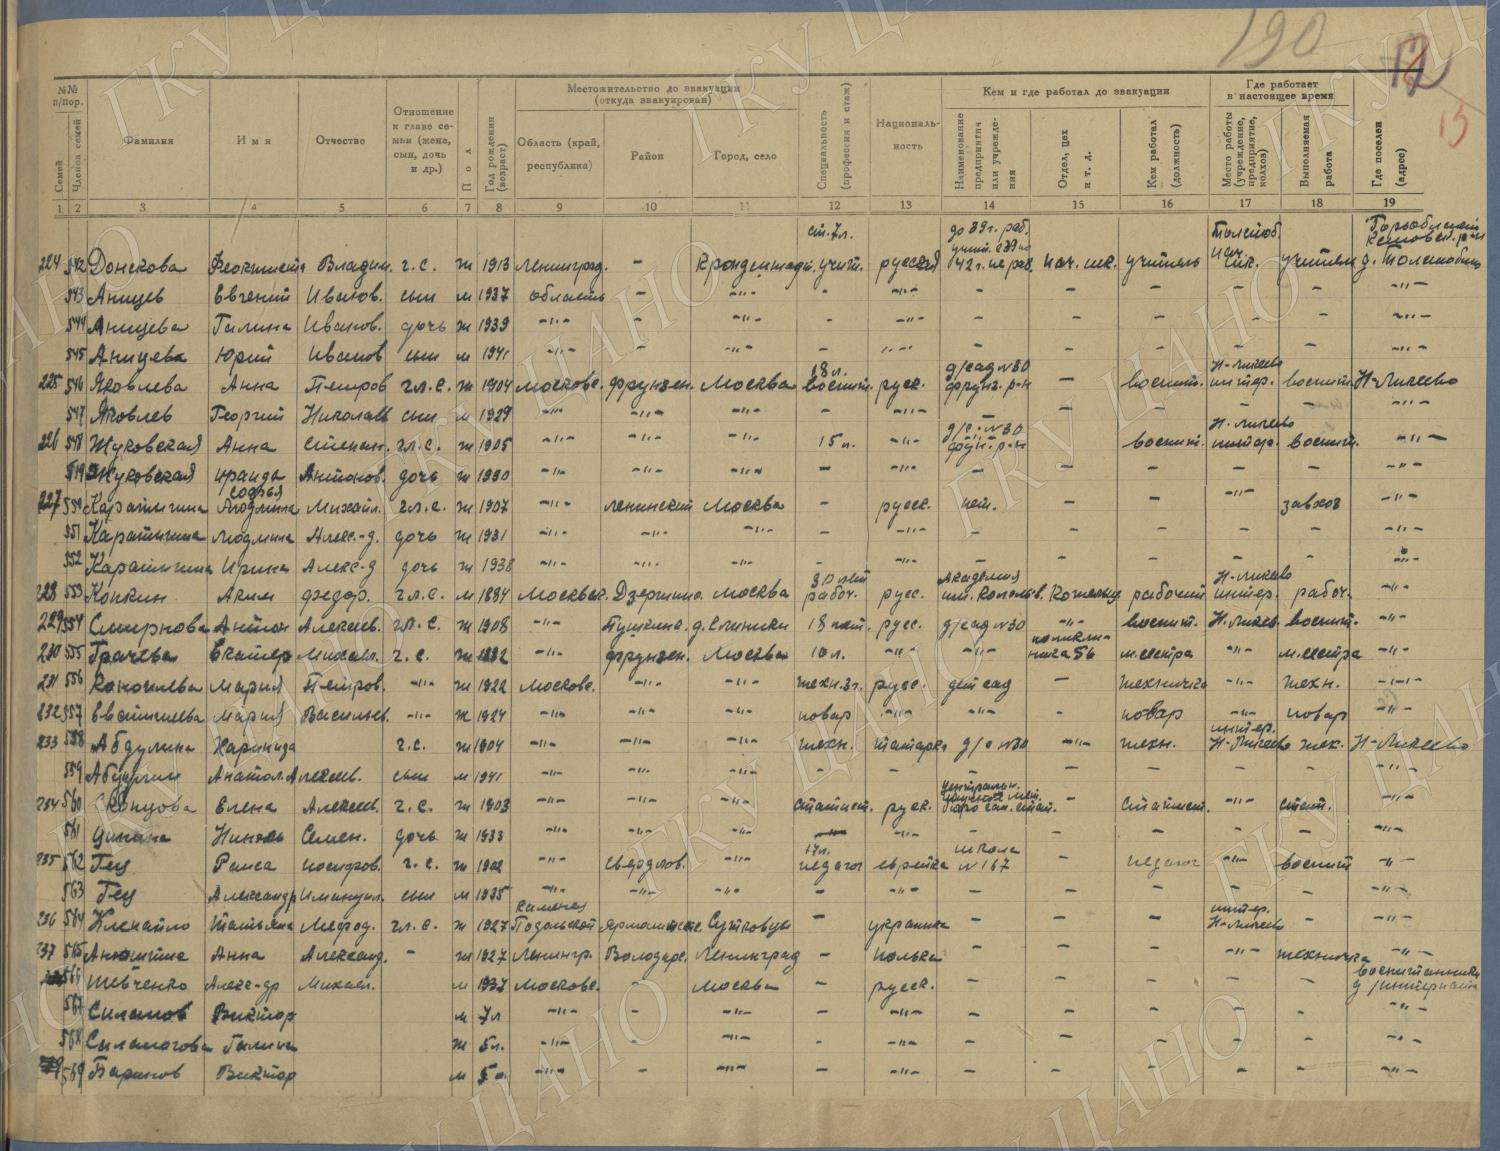 190
12
13
№№ п/пор.
Семей
Членов семей
Фамилия
Имя
Отчество
Отношение к главе семьи (жена, сын, дочь и др.)
Пол
Год рождения (возраст)
Местожительство до эвакуации (откуда эвакуирован)
Область (край, республика)
Район
Город, село
Специальность (профессия и стаж)
Националь-ность
Кем и где работал до эвакуации
Наименование предприятия или учрежде-ния
Отдел, цех и т. д.
Кем работал (должность)
Где работает в настоящее время
Место работы (учреждение, предприятие, колхоз)
Выполняемая работа
Где поселен (адрес)
1 2 3 4 5 6 7 8 9 10 11 12 13 14 15 16 17 18 19
ст. 7 л. до 39 г. раб.
224 542 Донскова Феоктиста Владим. г.с. ж 1913 Ленинград. - Кронштадт учит. русская нач. шк. учитель шк. учитель
543 Аницев Евгений Иванов. сын м 1937 область - -"- - -"- - - - - - -"-
544 Аницева Галина Иванов. дочь ж 1939 -"- - -"- - -"- - - - - - -"-
545 Аницева Юрий Иванов сын м 1941 -"- - -"- - -"- - - - - - -"-
18 л. д/сад №30 Н-Ликеево
225 546 Яковлева Анна Петров гл.с. ж 1904 Московс. Фрунзен. Москва воспит. русс. фрунз. р-н - воспит. интер. воспит. Н-Ликеево
547 Яковлев Георгий Николаев сын м 1929 -"- -"- -"- - -"- - - - - - -"-
д/с. №30 Н-Ликеево
226 548 Жуковская Анна Степан. гл.с. ж 1905 -"- -"- -"- 15 л. -"- фрун. р-н воспит. интер. воспит. -"-
549 Жуковская Ираида Антонов. дочь ж 1930 -"- -"- -"- - -"- - - - - - -"-
Софья
227 550 Каратыгина Людмила Михайл. гл.с. ж 1907 -"- Ленинский Москва - русс. нет. - - -"- завхоз -"-
551 Каратыгина Людмила Алекс-д. дочь ж 1931 -"- -"- -"- - -"- - - - - - -"-
552 Каратыгина Ирина Алекс-д дочь ж 1938 -"- -"- -"- - -"- - - - - - -"-
30 лет Академия Н-Ликеево
228 553 Конкин Аким Федор. гл.с. м 1884 Московс. Дзержинс. Москва рабоч. русс. рабочий интер. рабоч. -"-
229 554 Смирнова Антон Алексеев. гл.с. ж 1908 -"- Пушкинс. 18 лет. русс. д/сад №30 -"- воспит. Н.Ликев. воспит. -"-
поликли-
230 555 Грачева Екатер Михаил. г.с. ж 1892 -"- Фрунзен. Москва 10 л. -"- -"- ника 56 м.сестра -"- м.сестра -"-
231 556 Мария Петров. -"- ж 1922 Московс. -"- -"- техн. 3 г. русс. дет сад - техничка -"- техн. -"-
232 557 Мария Васильев. -"- ж 1924 -"- -"- -"- повар -"- -"- - повар -"- повар -"-
интер.
233 558 Абдулина г.с. ж 1904 -"- -"- -"- техн. татарка д/с №30 -"- техн. Н-Ликеево тех. Н-Ликеево
559 Абдулин Анатол. Алексеев. сын м 1941 -"- -"- -"- - - - - - - - -"-
Центральн.
234 560 Скопцова Елена Алексеев. г.с. ж 1903 -"- -"- -"- статист. русс. - статист. -"- стат. -"-
561 Нинель Семен. дочь ж 1933 -"- -"- -"- -"- - - - - - -"-
17 л. школа
235 562 Гец Раиса Иосифов. г.с. ж 1902 -"- Свердлов. -"- педагог еврейка №167 - педагог -"- воспит -"-
563 Гец Александр сын м 1935 -"- -"- -"- - -"- - - - - - -"-
Каменец интер.
236 564 Кленайло Татьяна Мефод. гл.с. ж 1927 Подольской Сутковцы - украинка - - - Н-Ликеево - -"-
237 565 Анна Александ. - ж 1927 Ленингр. Володарс. Ленинград - полька - - - -"- техничка -"-
воспитанники
566 Шевченко Алекс-др Михаил. м 1937 Московс. - Москва - русск. - - - - - д/интерната
567 Виктор м 7 л -"- - -"- - -"- - - - - - -"-
568 Галина ж 5 л. -"- - -"- - -"- - - - - - -"-
569 Баринов Виктор м 5 л. -"- - -"- - -"- - - - - - -"-
ГКУ ЦАНО